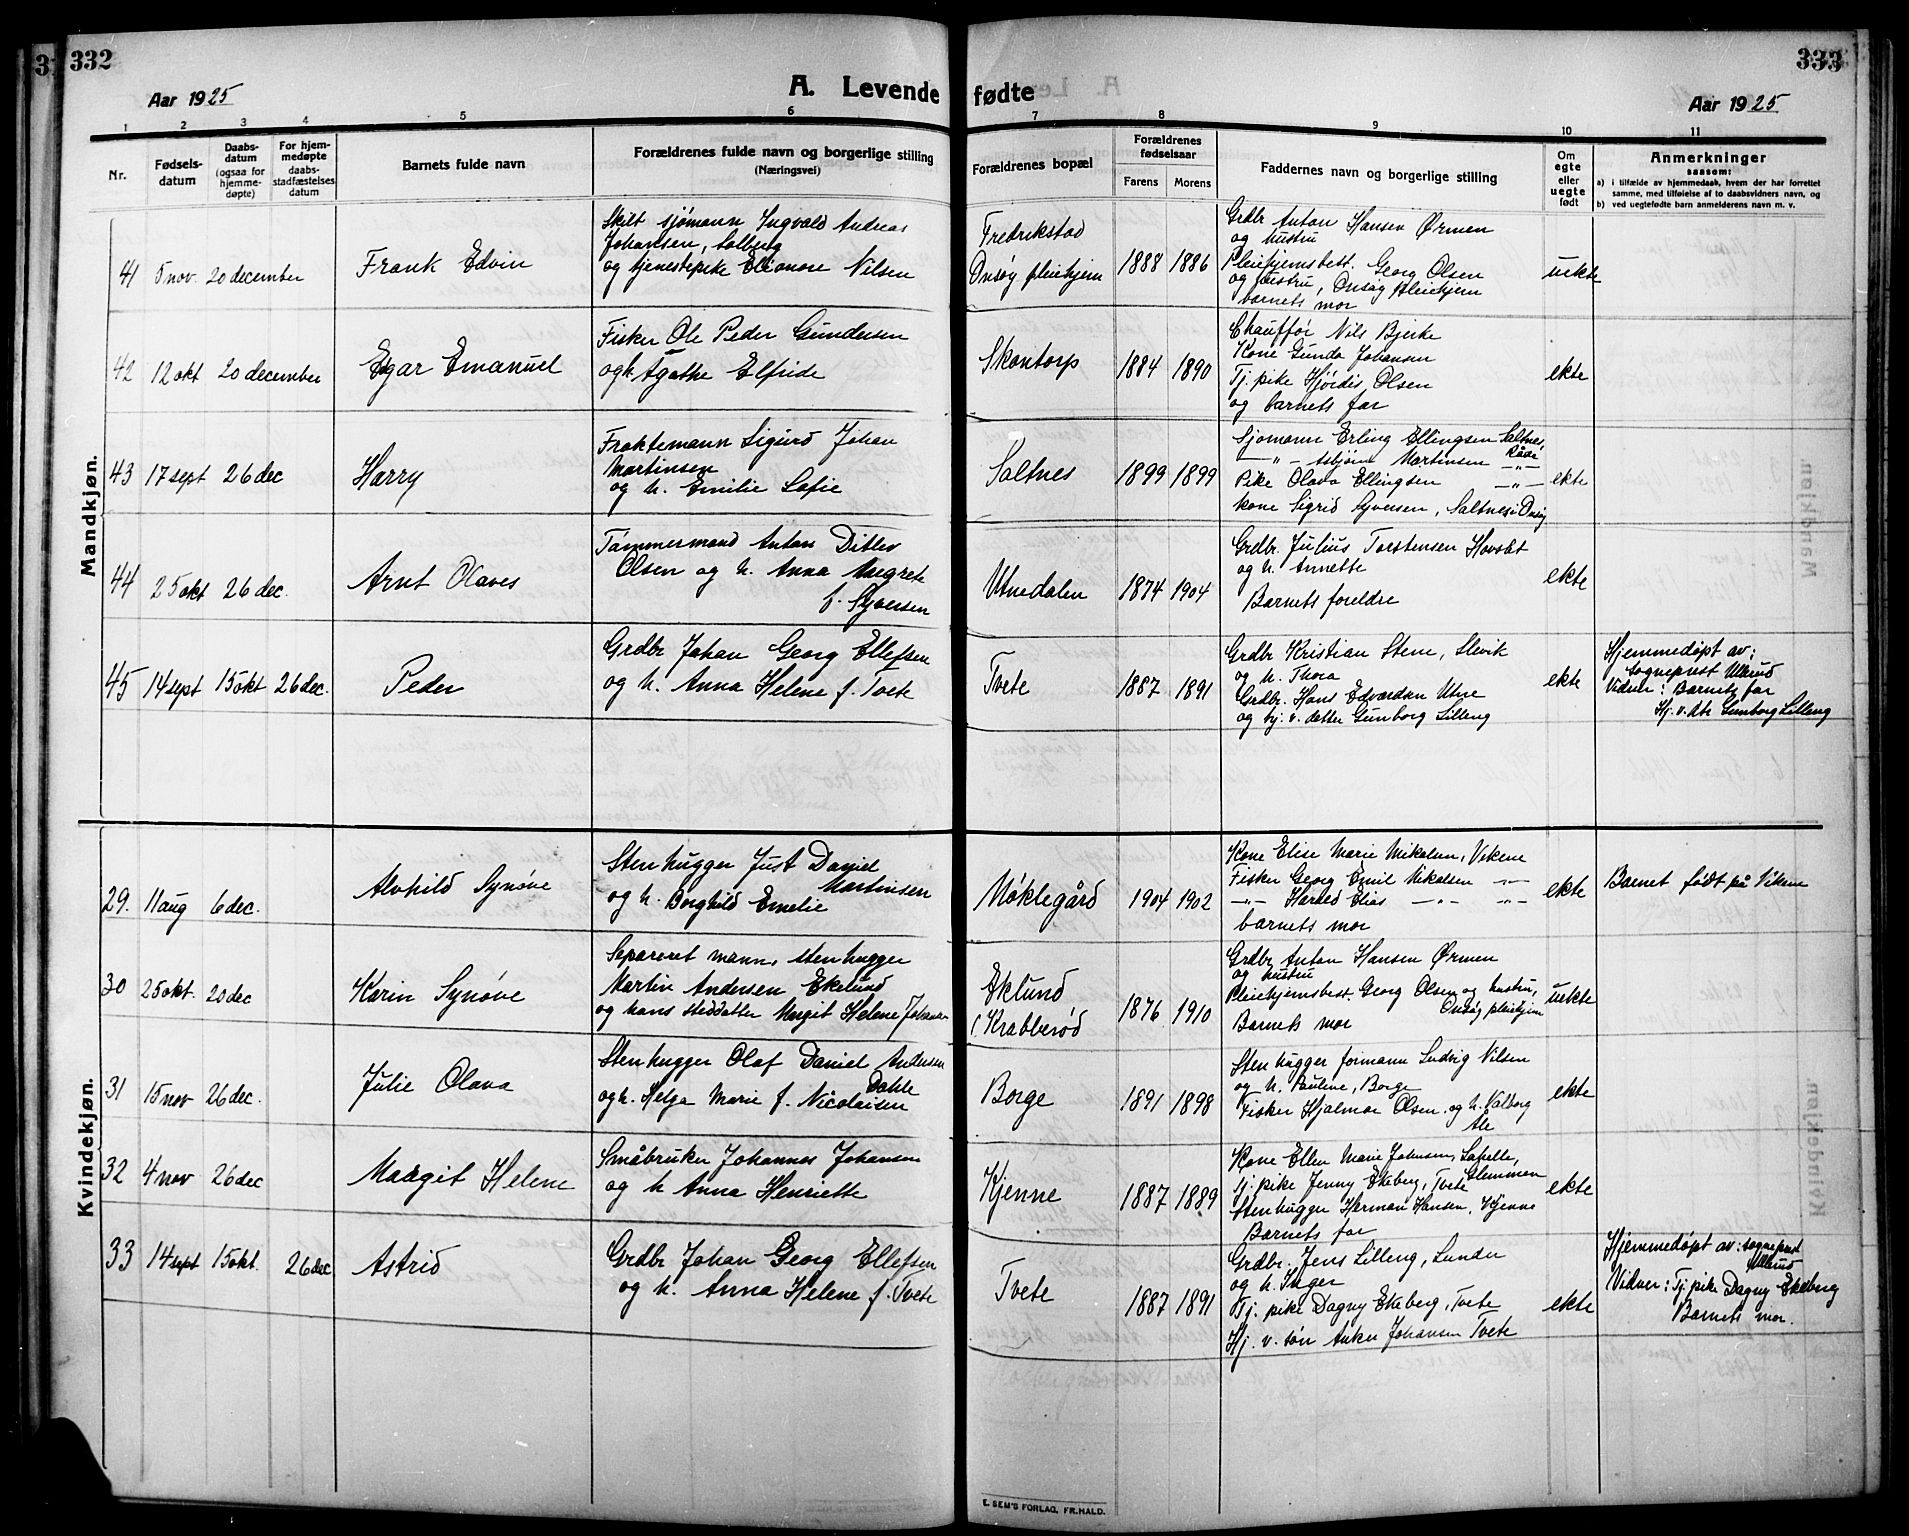 332
333
Aar 1925
A. Levende fødte
Aar 1925
1 2 3 4 5 6 7 8 9 10 11
Nr.
Fødsels-
datum
Daabs-
datum
(ogsaa for
hjemme-
døpte)
For hjem-
medøpte
daabs-
stadfæstelses
datum
Barnets fulde navn
Forældrenes fulde navn og borgerlige stilling
(Næringsvei)
Forældrenes bopæl
Forældrenes
fødselsaar
Farens Morens
Faddernes navn og borgerlige stilling
Om
egte
eller
uegte
født
Anmerkninger
saasom:
a) i tilfælde av hjemmedaab, hvem der har forrettet
samme, med tilføielse af to daabsvidners navn, og
b) ved uegtefødte barn anmelderens navn m. v.
Mandkjøn.
41 5 nov. 20 december
Frank Edvin
Skilt sjømann Ingvald Andreas
Johansen, Solberg
og tjenestepike Elionore Nilsen
Fredrikstad
Onsøy pleiehjem
1888 1886
Grdbr Anton Hansen Ørmen
og hustru
Pleiehjemsbest. Georg Olsen
og hustru, Onsøy pleiehjem
barnets mor
uekte
42 12 okt 20 december
Edgar Emanuel
Fisker Ole Peder Gundersen
og h. Agathe Elfride
Skontorp
1884 1890
Chauffør Nils Bjerke
Kone Gunda Johansen
Tj. pike Hjørdis Olsen
og barnets far
ekte
43 17 sept 26 dec
Harry
Fraktemann Sigurd Johan
Martinsen
og h. Emilie Sofie
Saltnes
1899 1899
Sjømann Erling Ellingsen Saltnes,
Råde
—„— Asbjørn Martinsen —„—
Pike Olava Ellingsen —„—
Kone Sigrid Syversen, Saltnes i Onsøy
ekte
44 25 okt 26 dec.
Arnt Olaves
Tømmermand Anton Ditlev
Olsen og h. Anna Margrete
f. Syversen
Utnedalen
1874 1904
Grdbr. Julius Torstensen Hovslet
og h. Annette
Barnets foreldre
ekte
45 14 sept 15 okt 26 dec.
Peder
Grdbr Johan Georg Ellefsen
og h. Anna Helene f. Tvete
Tvete
1887 1891
Grdbr Kristian Stene, Slevik
og h. Thora
Grdbr. Hans Edvardsen Utne
og hj. v. datter Gunborg Lilleng
ekte
Hjemmedøpt av:
sogneprest Ullerud
Vidner: Barnets far
Hj. v. dtr Gunborg Lilleng
Kvindekjøn.
29. 11 aug 6 dec.
Alvhild Synøve
Stenhugger Just Daniel
Martinsen
og h. Borghild Emelie
Møklegård
1904 1902
Kone Elise Marie Mikalsen, Vikene
Fisker Georg Emil Mikalsen —„—
—„— Harald Elias —„— —„—
barnets mor
ekte
Barnet født på Vikene
30 25 okt. 20 dec
Karin Synøve
Separeret mann, stenhugger
Martin Andersen Ekelund
og hans steddatter Margit Helene Johansen
Eklund
(Krabberød
1876 1910
Grdbr Anton Hansen Ørmen
og hustru
Pleiehjemsbest. Georg Olsen og hustru,
Onsøy pleiehjem
Barnets mor
uekte
31 15 nov 26 dec.
Julie Olava
Stenhugger Olaf Daniel Andersen
Dahle
og h. Helga Marie f. Nicolaisen
Borge
1891 1898
Stenhugger formann Ludvig Nilsen
og h. Pauline, Borge
Fisker Hjalmar Olsen og h. Valborg
Ale
ekte
32 4 nov 26 dec
Margit Helene
Småbruker Johannes Johansen
og h Anna Henriette
Kjenne
1887 1889
Kone Ellen Marie Johansen, Lahelle,
Glemmen
Tj. pike Jenny Ekeberg, Tvete
Stenhugger Herman Hansen, Kjenne
Barnets far
ekte
33 14 sept 15 okt. 26 dec
Astrid
Grdbr Johan Georg Ellefsen
og h. Anna Helene f. Tvete
Tvete
1887 1891
Grdbr. Jens Lilleng, Lunder
og h. Inger
Tj. pike Dagny Ekeberg, Tvete
Hj. v. søn Anker Johansen Tvete
ekte
Hjemmedøpt av: sogneprest
Ullerud
Vidner: Tj. pike Dagny Ekeberg
Barnets mor.
E. SEM'S FORLAG, FR.HALD.